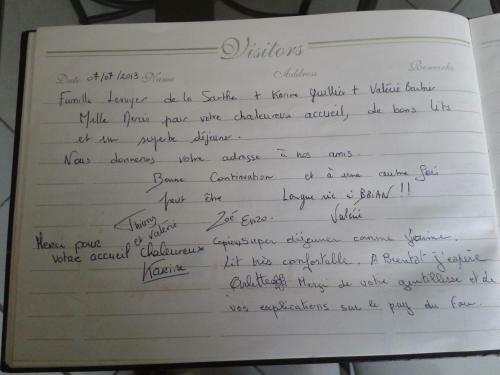 Visitors
Date 7/07/2013 Name Address Remarks
Famille de la Sarthe + Karine + Valérie
Mille Mercis pour votre chaleureux accueil, de bons lits
et un superbe déjeuner.
Nous donnerons votre adresse à nos amis.
Bonne Continuation et à une autre fois
peut être Longue vie à BRIAN !!
Thierry et Valérie Zoé Enzo. Valérie
Merci pour
votre accueil chaleureux
Karine
Copieux Super déjeuner comme j'aime.
Lit très confortable. A Bientot j'espère
Odette Merci de votre gentillesse et de
vos explications sur le puy du fou.